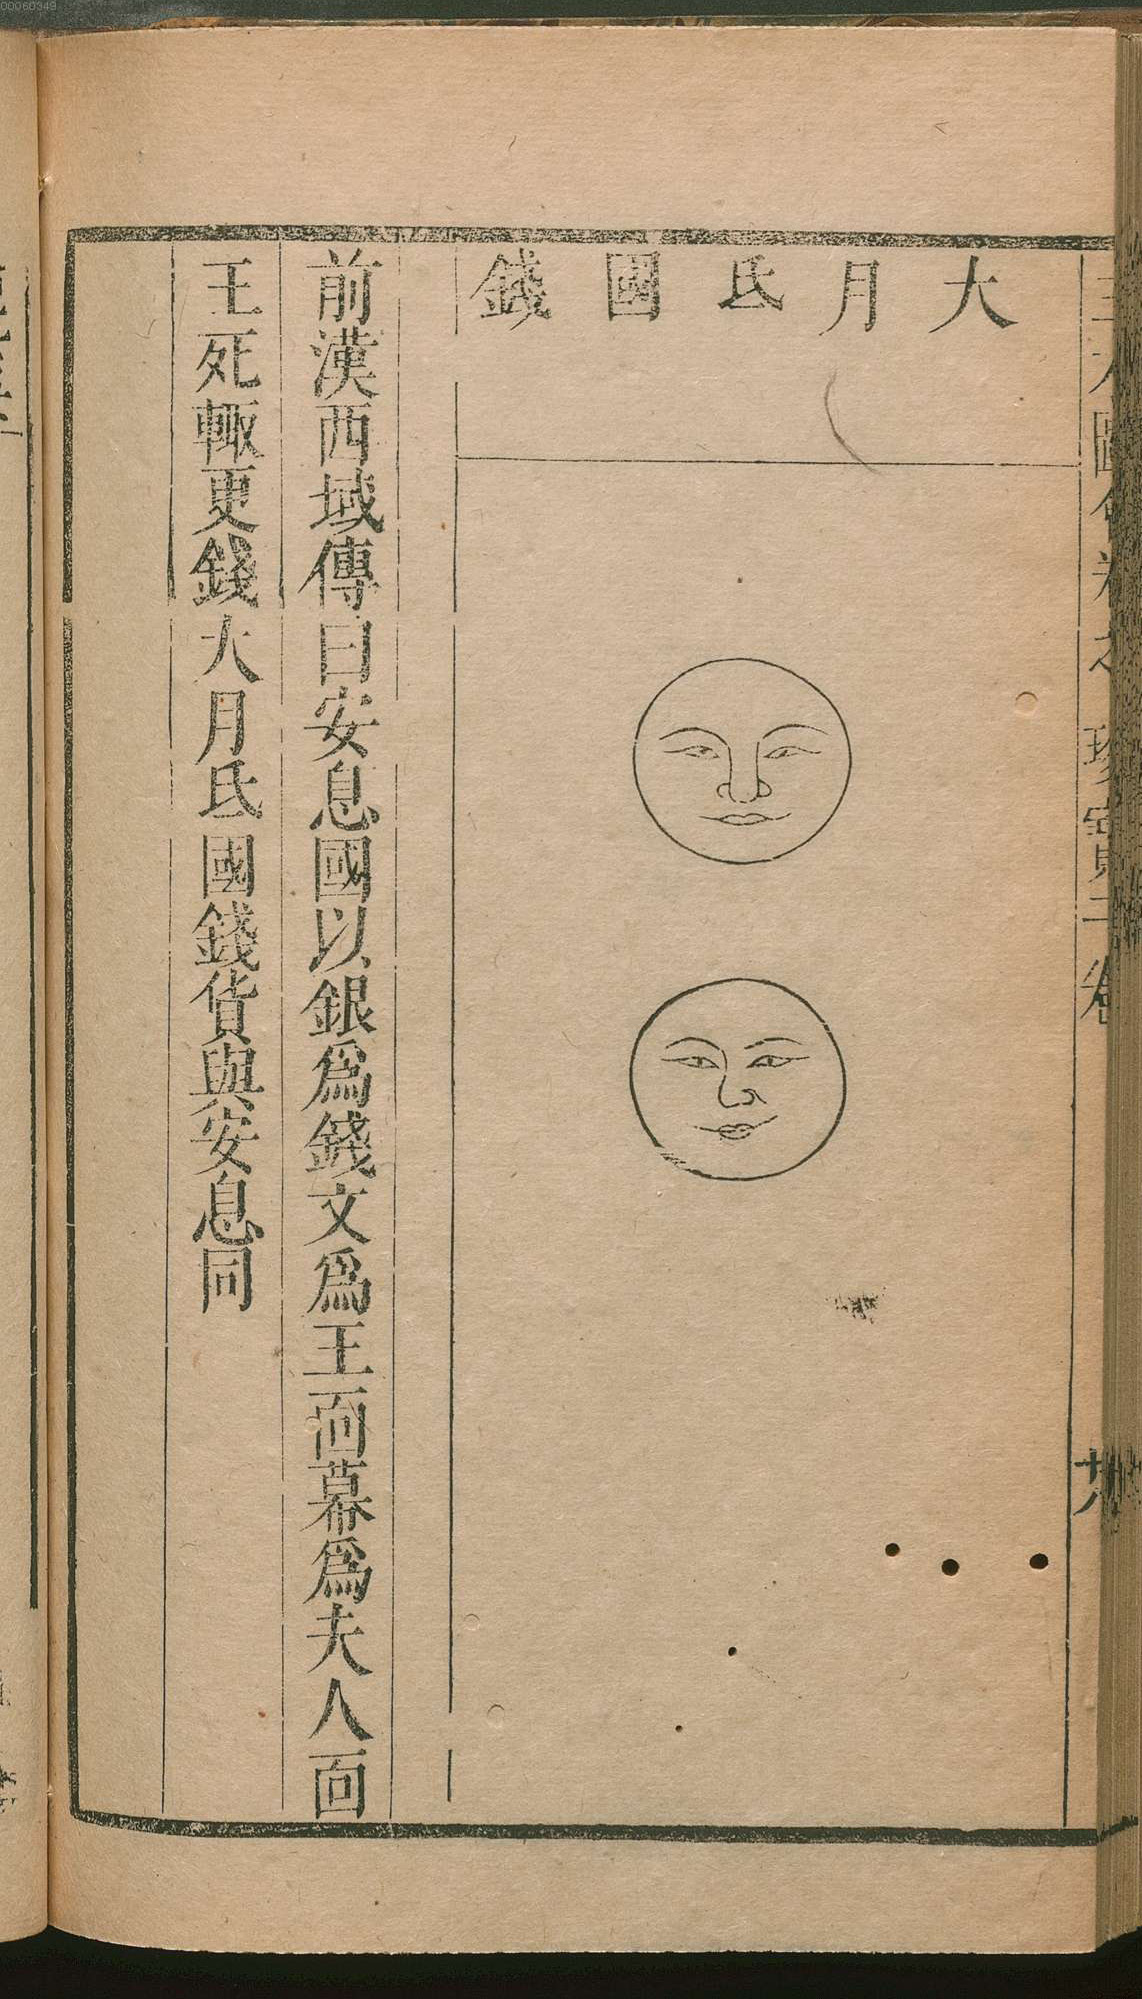 大月氏國錢
前漢西域傳曰安息國以銀爲錢文爲王面幕爲夫人面
王死輙更錢大月氏國錢貨與安息同
珍寶二卷
廿八
00060349